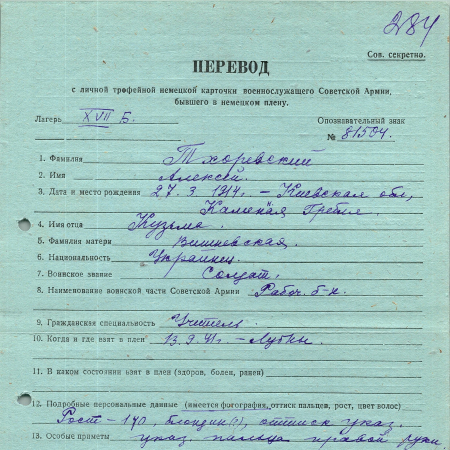 284
Сов. секретно.
ПЕРЕВОД
с личной трофейной немецкой карточки военнослужащего Советской Армии,
бывшего в немецком плену.
Лагерь XVII Б. Опознавательный знак
№ 81504.
1. Фамилия Тхоревский
2. Имя Алексей.
3. Дата и место рождения 27.3.1914. – Киевская обл,
Каменая Гребля.
4. Имя отца Кузьма.
5. Фамилия матери Вишневская.
6. Национальность Украинец.
7. Воинское звание Солдат.
8. Наименование воинской части Советской Армии Рабоч. б-н.
9. Гражданская специальность Учитель.
10. Когда и где взят в плен 13.9.41г. – Лубны.
11. В каком состоянии взят в плен (здоров, болен, ранен)
12. Подробные персональные данные (имеется фотография, оттиск пальцев, рост, цвет волос)
Рост – 170, блондин(?), оттиск указ.
13. Особые приметы указ. пальца правой руки